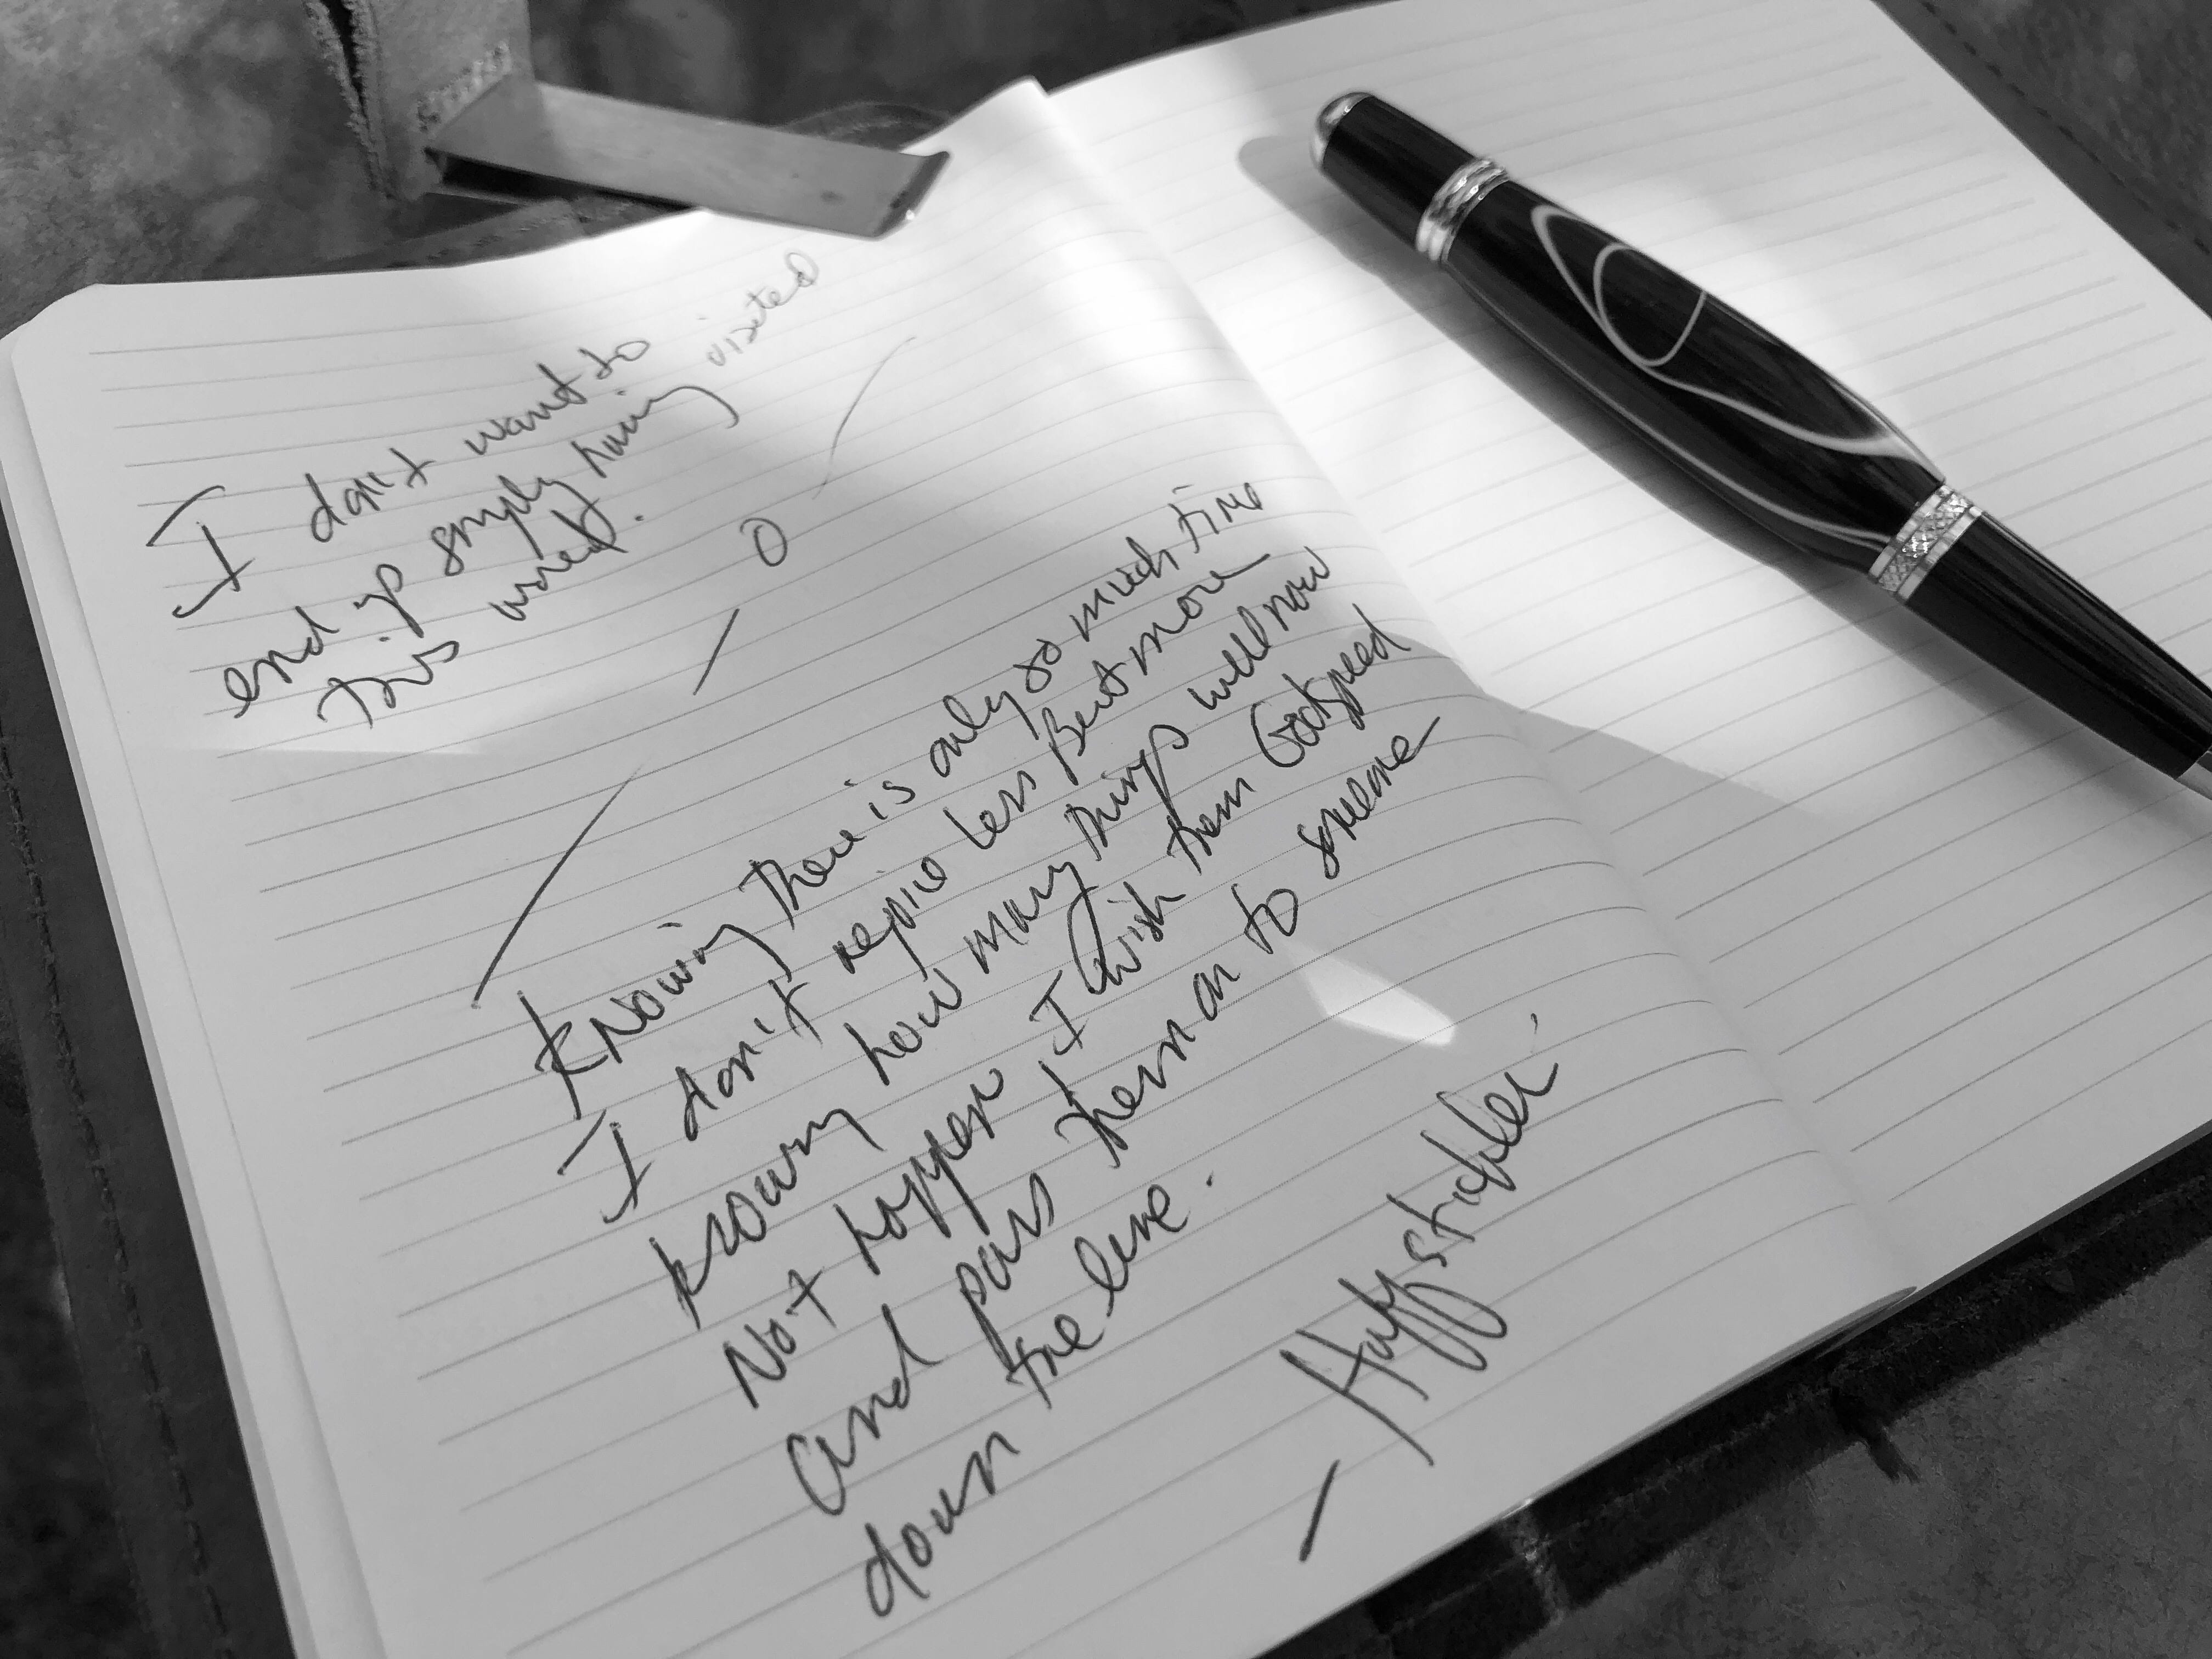 I don't want to
end up simply having visited
this world.
— 0 —
Knowing there is only so much time
I don't rejoice less But more
knowing how many things will now
Not happen I wish them Godspeed
and pass them on to someone
down the line.
—